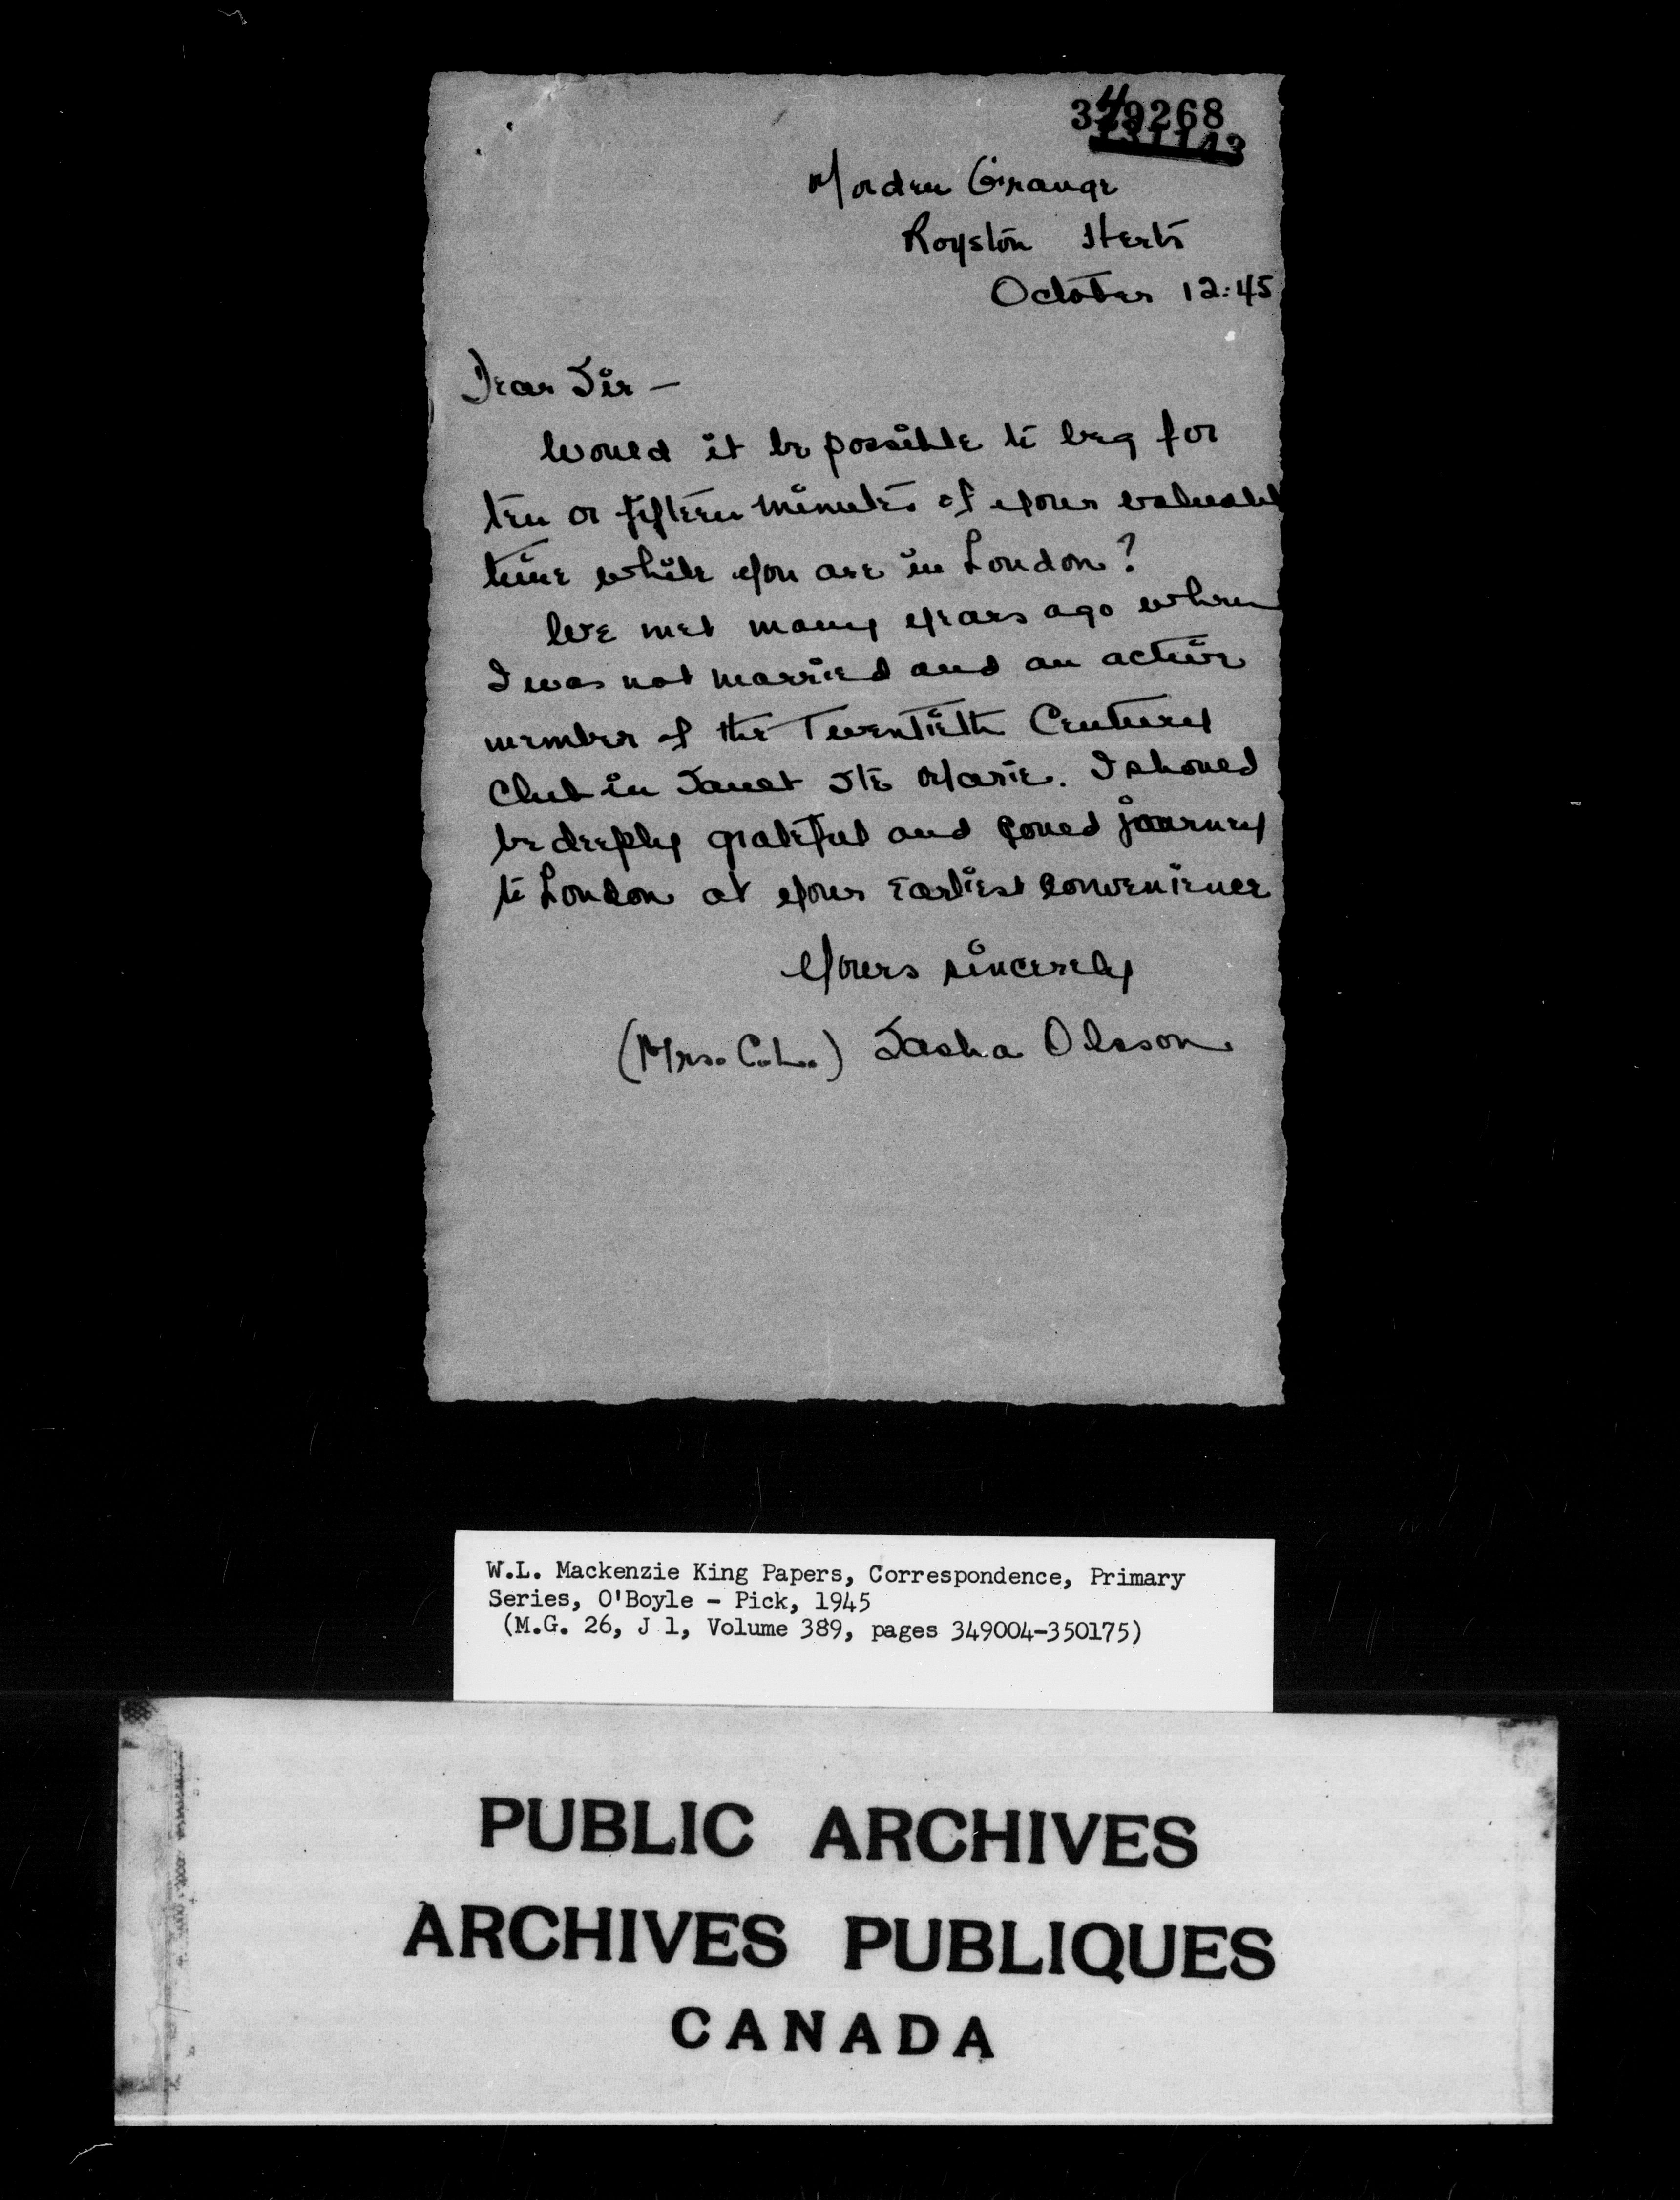 349268
131143
Morden Grange
Royston Herts
October 12:45
Dear Sir —
Would it be possible to beg for
ten or fifteen minutes of your valuable
time while you are in London?
We met many years ago when
I was not married and an active
member of the Twentieth Century
Club in Sault Ste Marie. I should
be deeply grateful and could journey
to London at your earliest convenience
Yours sincerely
(Mrs. C.L.) Sasha Olsson
W.L. Mackenzie King Papers, Correspondence, Primary
Series, O'Boyle - Pick, 1945
(M.G. 26, J 1, Volume 389, pages 349004-350175)
PUBLIC ARCHIVES
ARCHIVES PUBLIQUES
CANADA